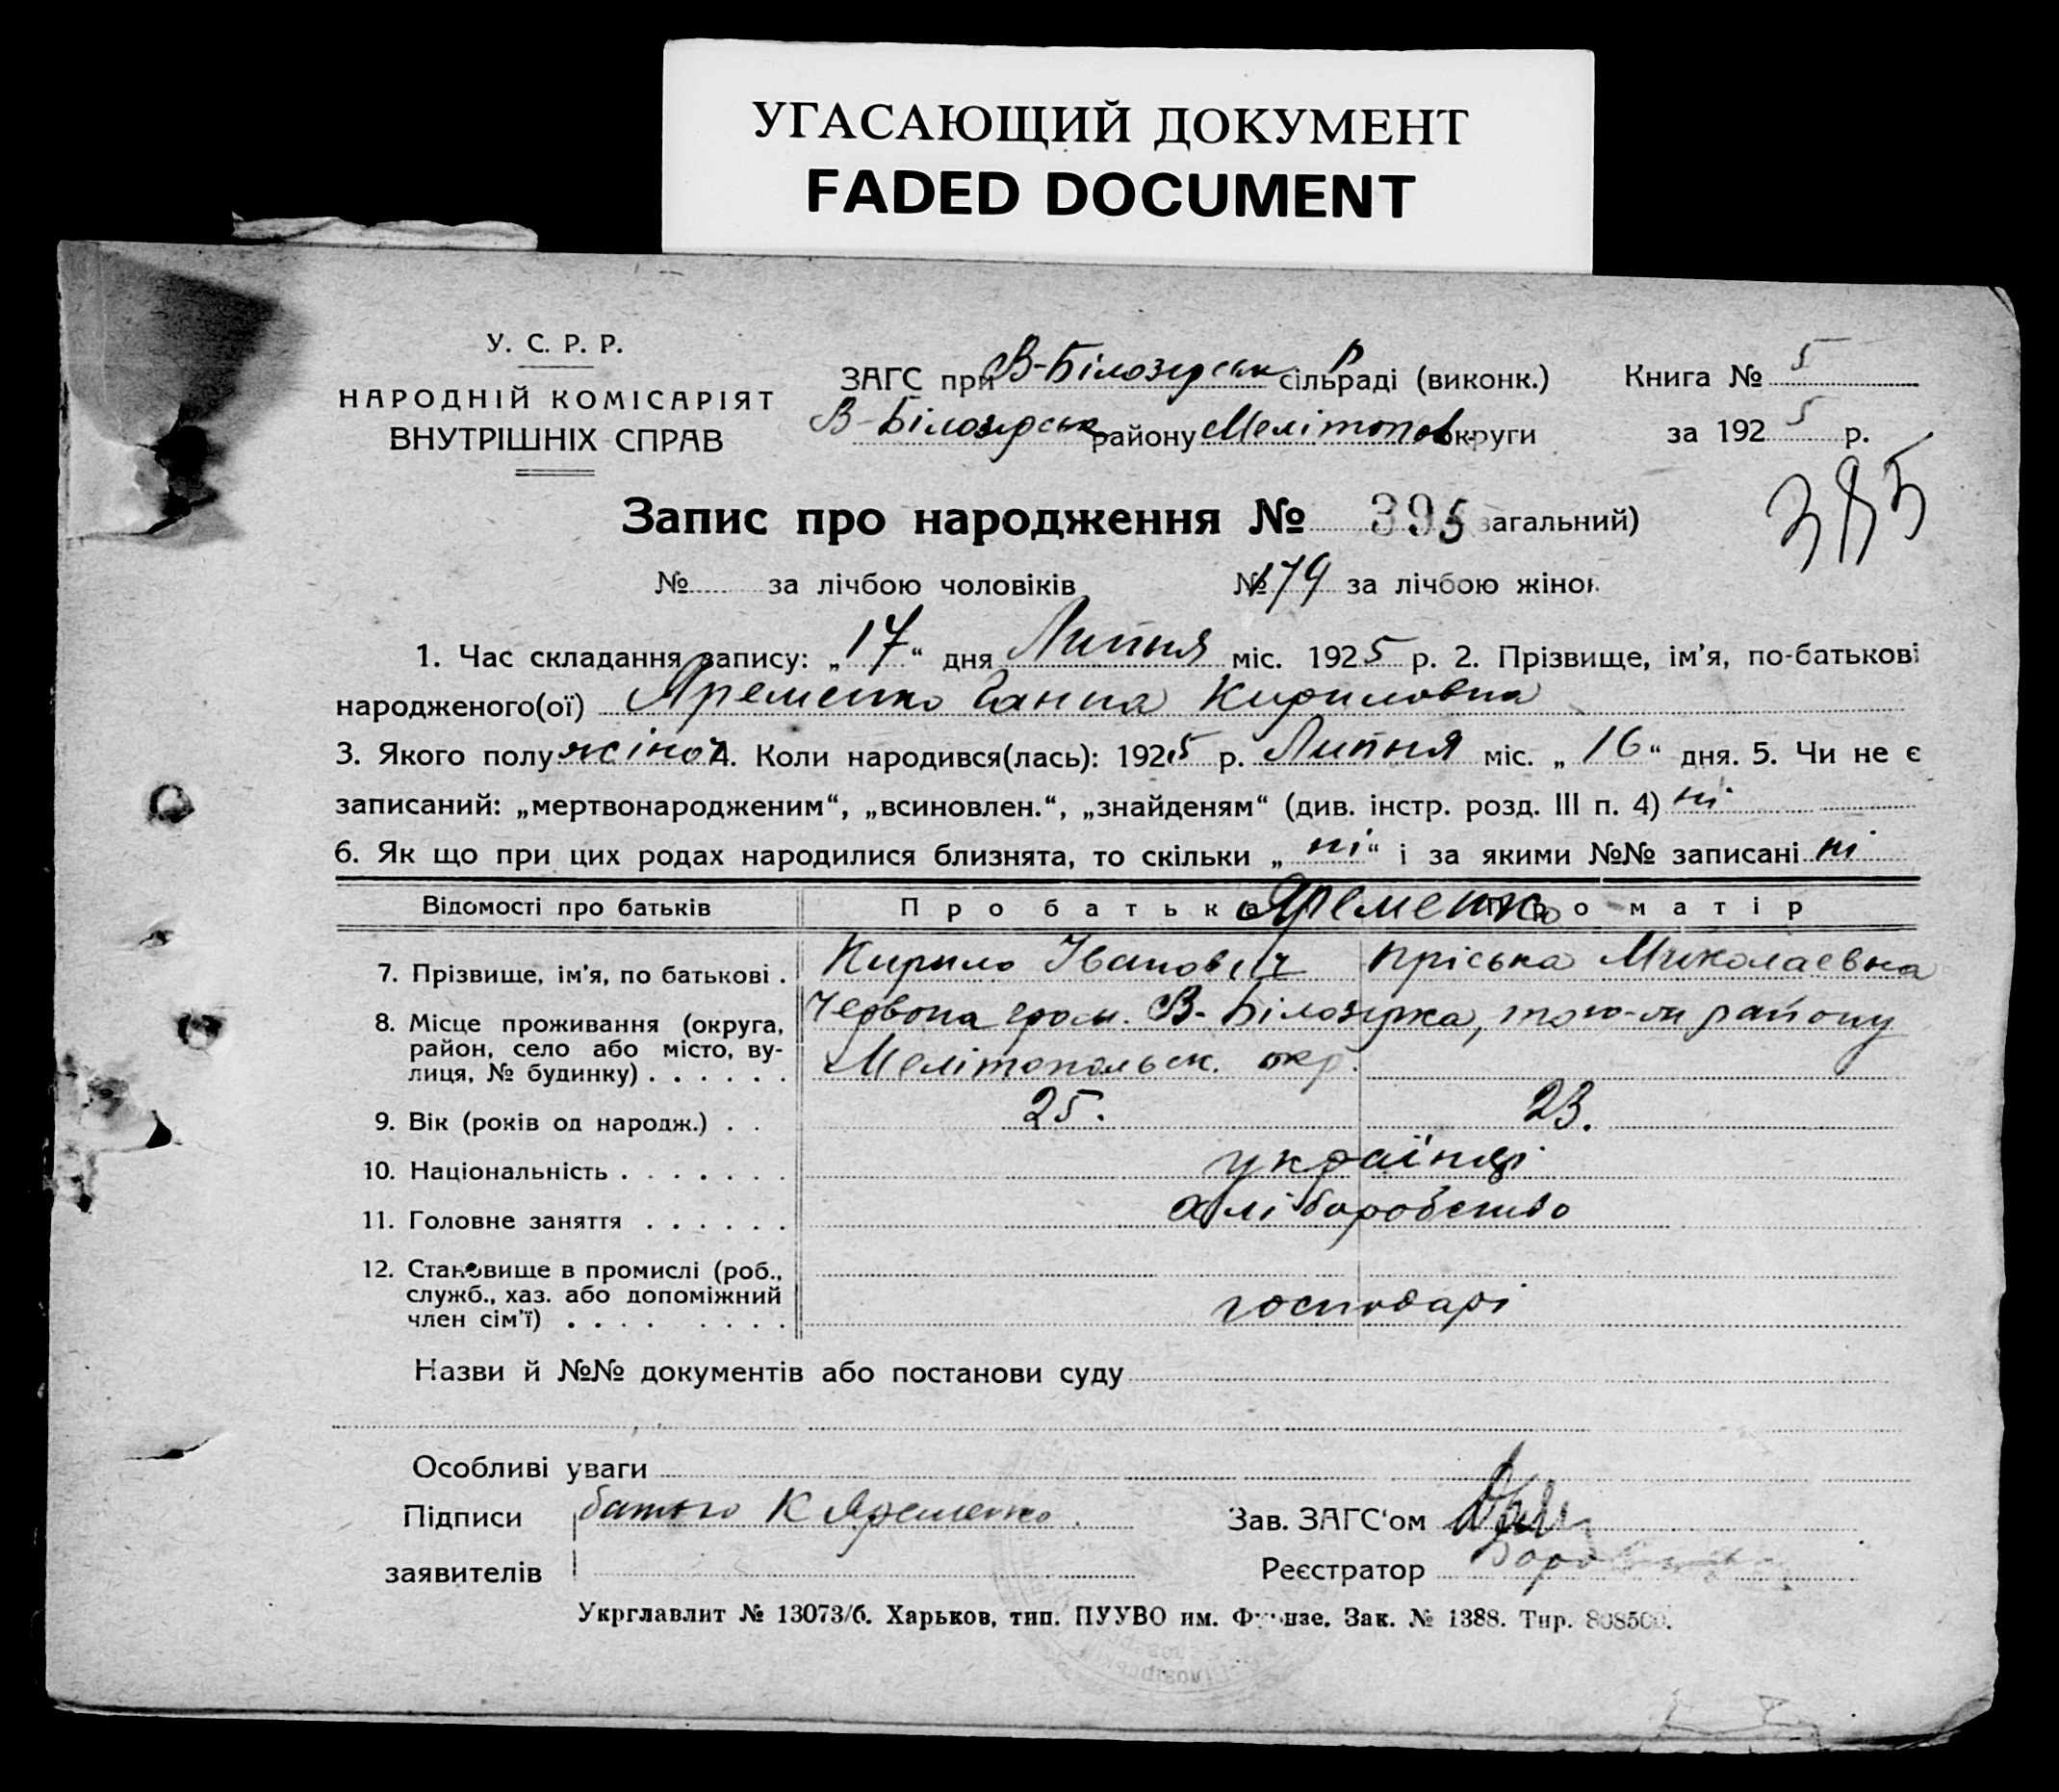 УГАСАЮЩИЙ ДОКУМЕНТ
FADED DOCUMENT
У. С. Р. Р.
НАРОДНІЙ КОМІСАРІЯТ
ВНУТРІШНІХ СПРАВ
ЗАГС при В-Білозерськ сільраді (виконк.)
В-Білозерськ району Мелітопов округи
Книга № 5
за 1925 р.
385
Запис про народження № 395 загальний)
№ за лічбою чоловіків № 179 за лічбою жінок
1. Час складання запису: „17“ дня Липня міс. 1925 р. 2. Прізвище, ім’я, по-батькові
народженого(ої) Яременко Ганна Кириловна
3. Якого полу жіноч. 4. Коли народився(лась): 1925 р. Липня міс. „16“ дня. 5. Чи не є
записаний: „мертвонародженим“, „всиновлен.“, „знайденям“ (див. інстр. розд. III п. 4) ні
6. Як що при цих родах народилися близнята, то скільки „ні“ і за якими №№ записані ні
Відомості про батьків Про батька Яременко Про матір
7. Прізвище, ім’я, по батькові . Кирило Іванович Пріська Миколаевна
8. Місце проживання (округа, Червона гром. В-Білозерка, того-ж району
район, село або місто, ву-
лиця, № будинку) . . . . . . Мелітопольск. окр.
9. Вік (років од народж.) . . 25. 23.
10. Національність . . . . . . українці
11. Головне заняття . . . . . . хліборобство
12. Становище в промислі (роб.,
служб., хаз. або допоміжний господарі
член сім’ї) . . . . . . . .
Назви й №№ документів або постанови суду
Особливі уваги
Підписи батько К Яременко. Зав. ЗАГС‘ом
заявителів Реєстратор
Укрглавлит № 13073/б. Харьков, тип. ПУУВО им. Фрунзе. Зак. № 1388. Тир. 808500.